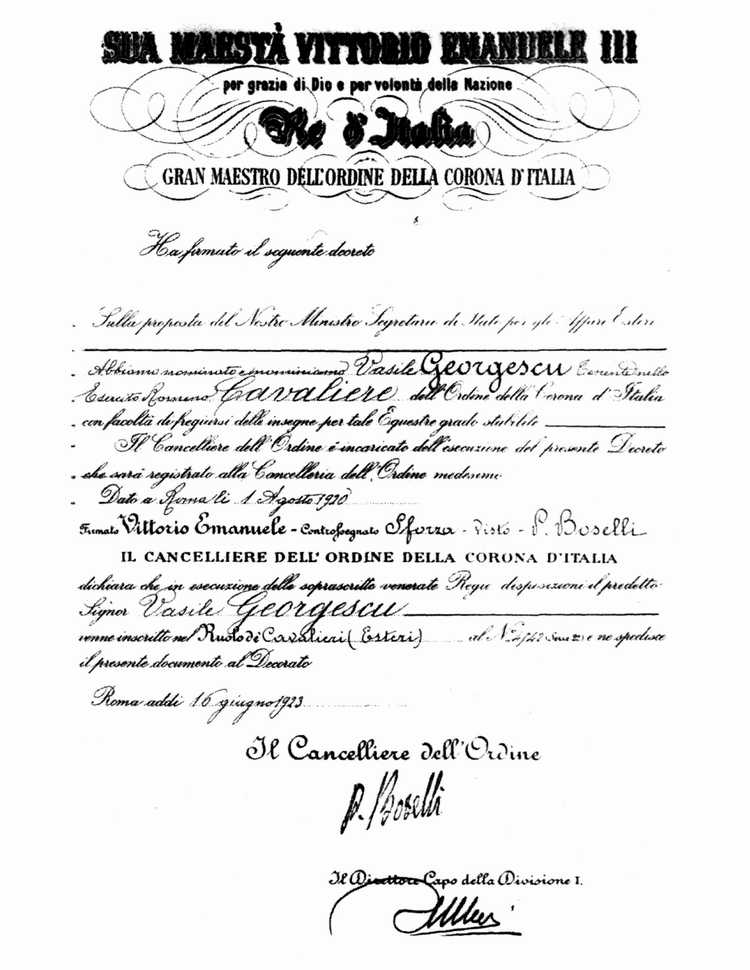 SUA MAESTÀ VITTORIO EMANUELE III
per grazia di Dio e per volontà della Nazione
Re d'Italia
GRAN MAESTRO DELL'ORDINE DELLA CORONA D'ITALIA
Ha firmato il seguente decreto
Sulla proposta del Nostro Ministro Segretario di Stato per gli Affari Esteri
Abbiamo nominato e nominiamo Vasile Georgescu Tenente nello
Esercito Romeno Cavaliere dell'Ordine della Corona d'Italia
con facoltà di fregiarsi delle insegne per tale Equestre grado stabilite
Il Cancelliere dell'Ordine è incaricato dell'esecuzione del presente Decreto
che sarà registrato alla Cancelleria dell'Ordine medesimo
Dato a Roma li 1 Agosto 1920
Firmato Vittorio Emanuele - Controssegnato Sforza - Visto - P. Boselli
IL CANCELLIERE DELL'ORDINE DELLA CORONA D'ITALIA
dichiara che in esecuzione delle soprascritte venerate Regie disposizioni il predetto
Signor Vasile Georgescu
venne inscritto nel Ruolo di Cavalieri (Esteri) al N. e ne spedisce
il presente documento al Decorato
Roma addì 16 giugno 1923
Il Cancelliere dell'Ordine
P. Boselli
Il Direttore Capo della Divisione I.